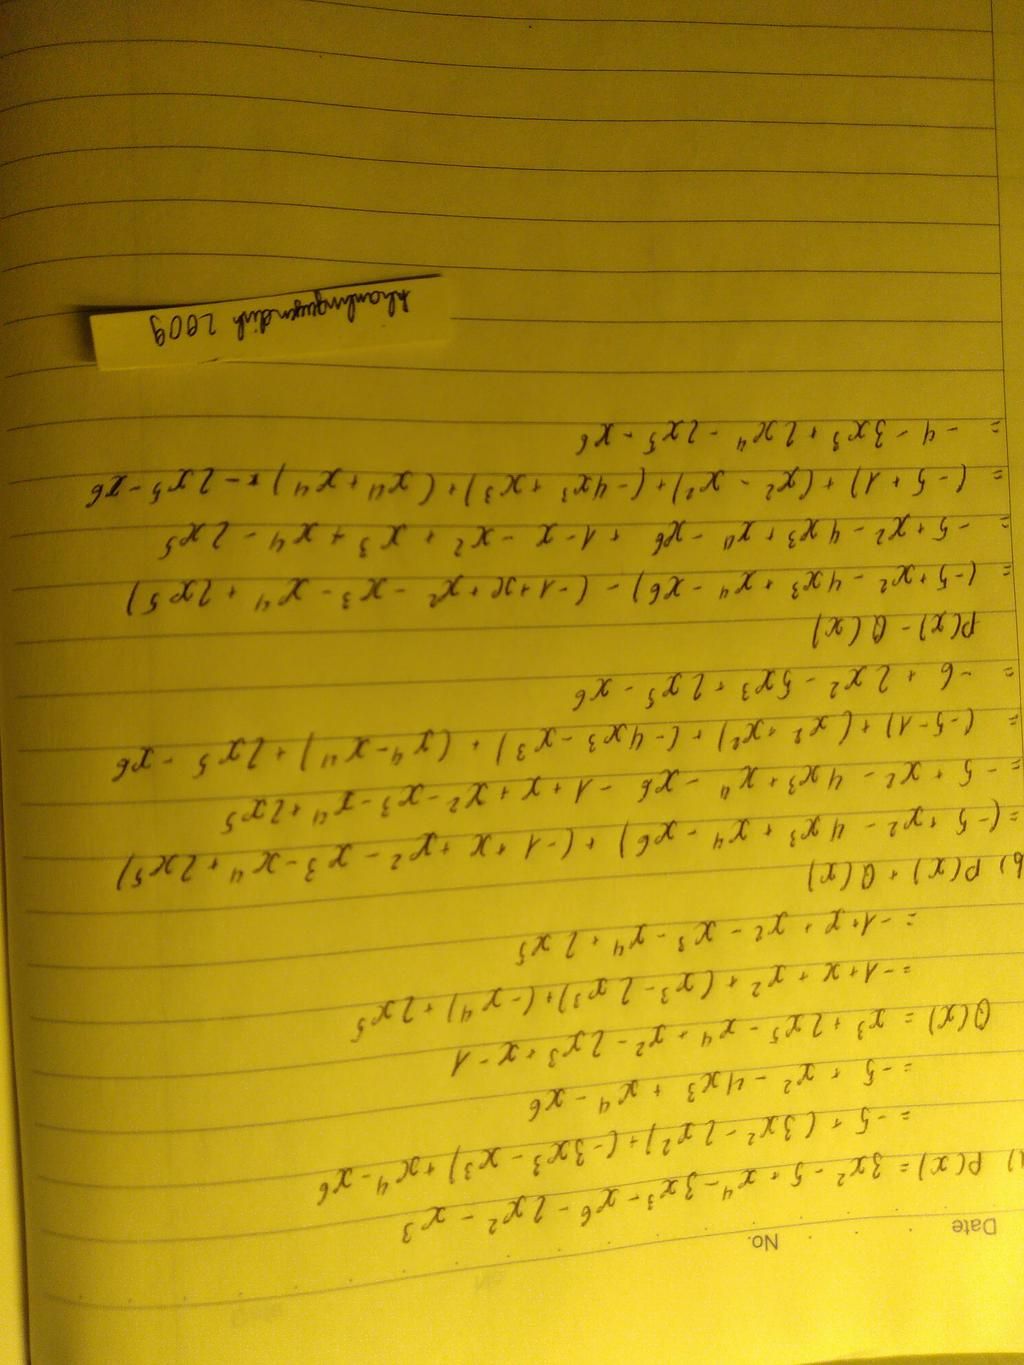 Date No.
a) P(x) = 3x² - 5 + x⁴ - 3x³ - x⁶ - 2x² - x³
= -5 + (3x² - 2x²) + (-3x³ - x³) + x⁴ - x⁶
= -5 + x² - 4x³ + x⁴ - x⁶
Q(x) = x³ + 2x⁵ - x⁴ + x² - 2x³ + x - 1
= -1 + x + x² + (x³ - 2x³) + (-x⁴) + 2x⁵
= -1 + x + x² - x³ - x⁴ + 2x⁵
b) P(x) + Q(x)
= (-5 + x² - 4x³ + x⁴ - x⁶) + (-1 + x + x² - x³ - x⁴ + 2x⁵)
= -5 + x² - 4x³ + x⁴ - x⁶ - 1 + x + x² - x³ - x⁴ + 2x⁵
= (-5-1) + (x² + x²) + (-4x³ - x³) + (x⁴ - x⁴) + 2x⁵ - x⁶
= -6 + 2x² - 5x³ + 2x⁵ - x⁶
P(x) - Q(x)
= (-5 + x² - 4x³ + x⁴ - x⁶) - (-1 + x + x² - x³ - x⁴ + 2x⁵)
= -5 + x² - 4x³ + x⁴ - x⁶ + 1 - x - x² + x³ + x⁴ - 2x⁵
= (-5 + 1) + (x² - x²) + (-4x³ + x³) + (x⁴ + x⁴) - 2x⁵ - x⁶
= -4 - 3x³ + 2x⁴ - 2x⁵ - x⁶
khanhnguyendinh 2009